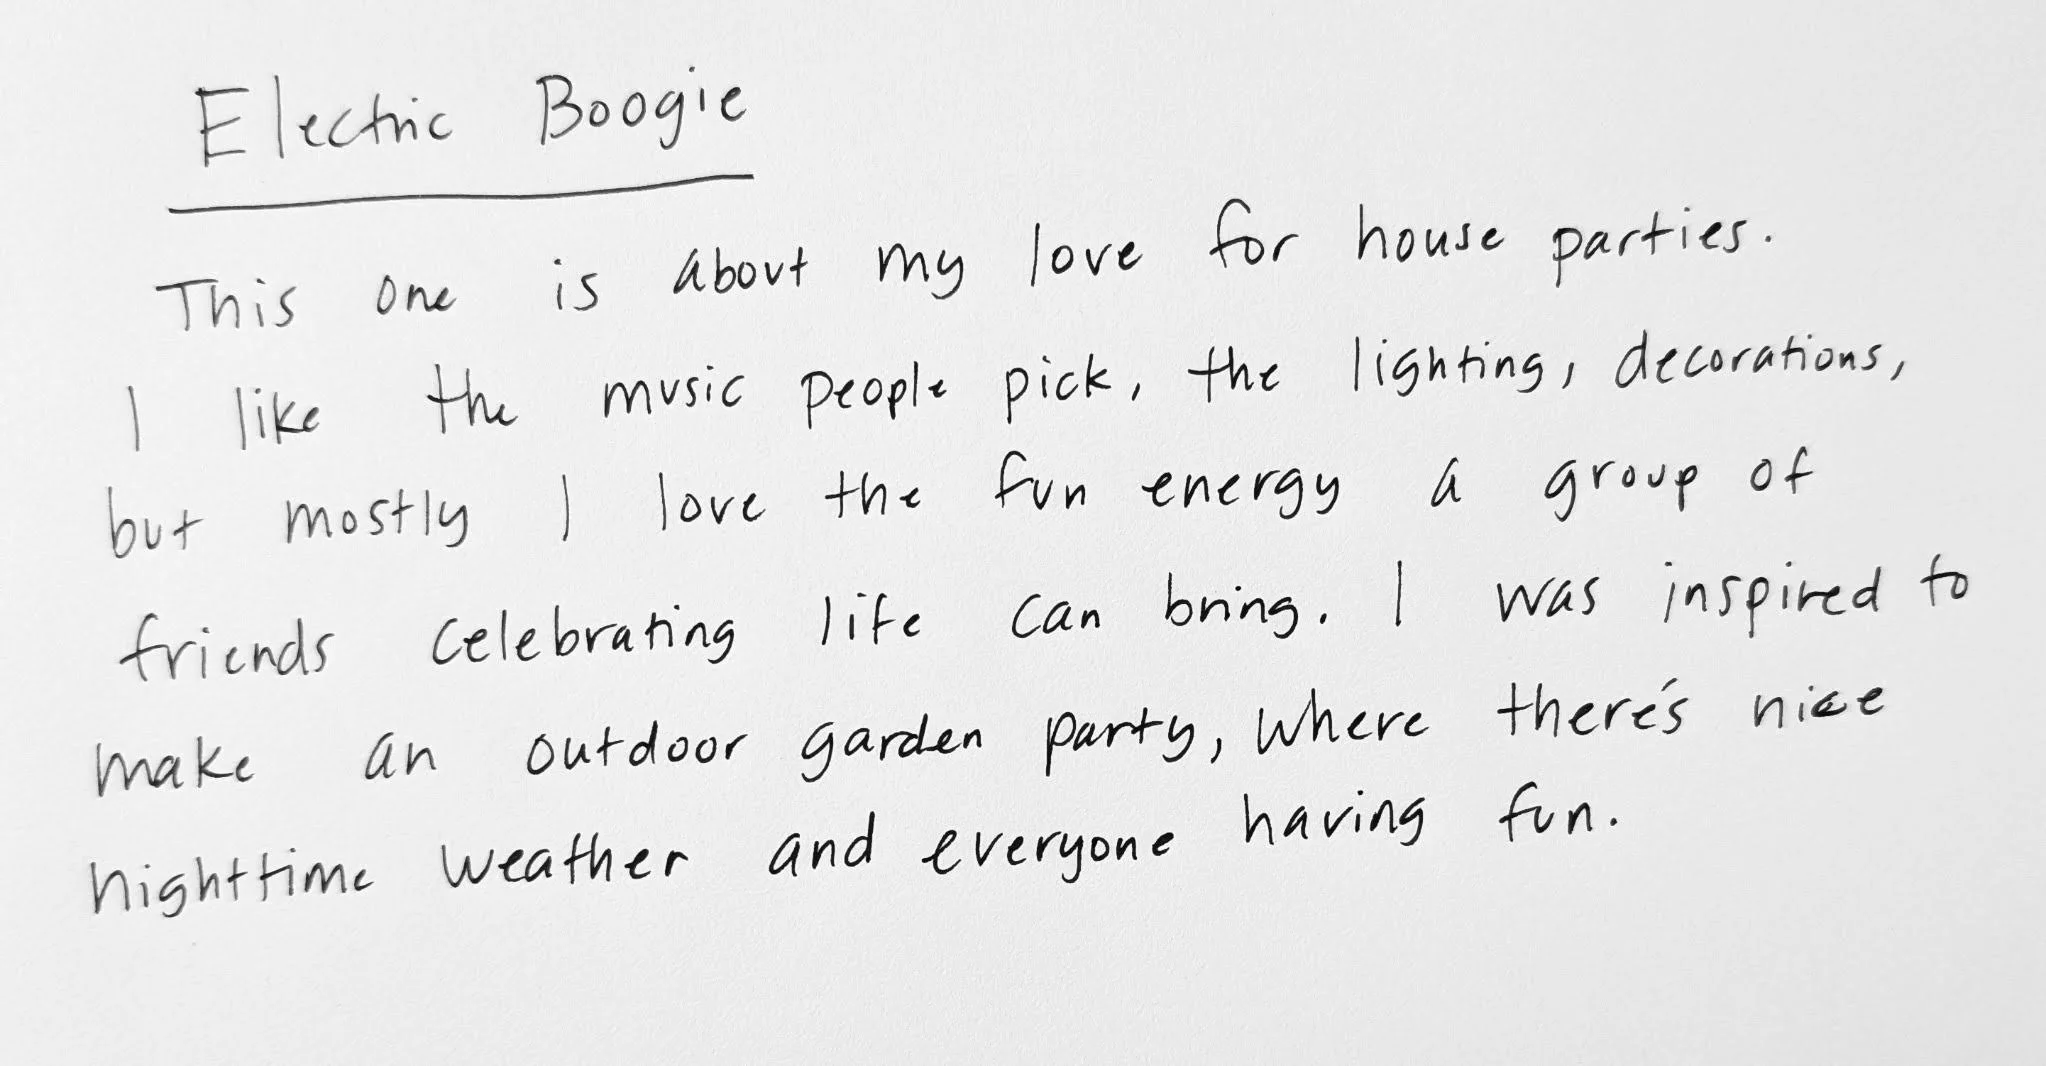 Electric Boogie
This one is about my love for house parties.
I like the music people pick, the lighting, decorations,
but mostly I love the fun energy a group of
friends celebrating life can bring. I was inspired to
make an outdoor garden party, where there's nice
nighttime weather and everyone having fun.